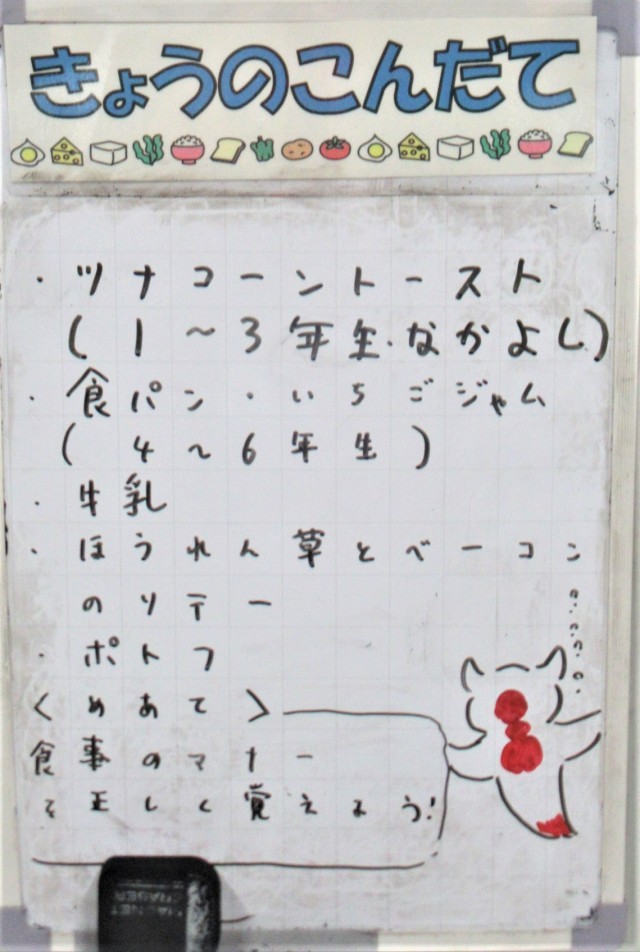 きょうのこんだて
・ツナコーントースト
(1〜3年生・なかよし)
・食パン・いちごジャム
(4〜6年生)
・牛乳
・ほうれん草とベーコン
のソテー
・ポトフ
<めあて>
食事のマナー
を正しく覚えよう!